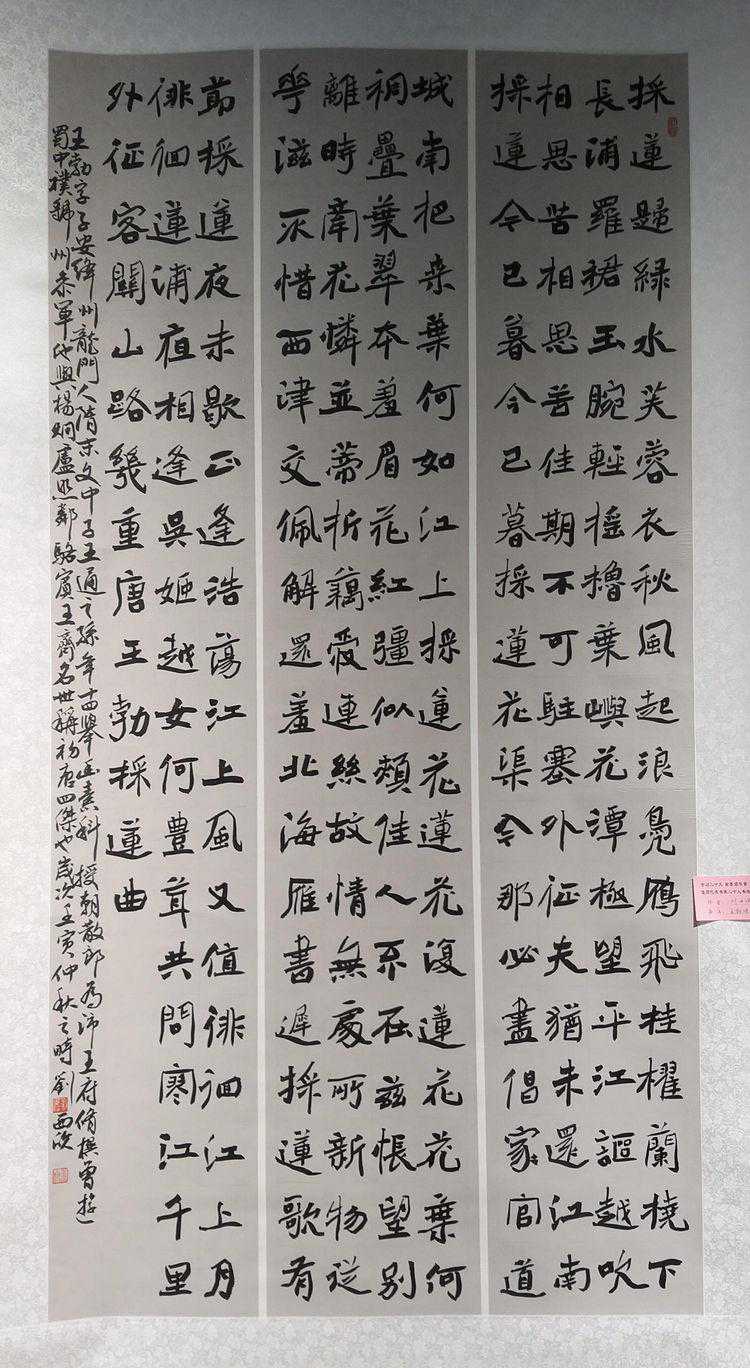 採蓮歸緑水芙蓉衣秋風起浪鳧鴈飛桂櫂蘭橈下
長浦羅裙玉腕輕搖擼葉嶼花潭極望平江謳越吹
相思苦相思苦佳期不可駐塞外征夫猶未還江南
採蓮今已暮今已暮採蓮花渠今那必盡倡家官道
城南把桒葉何如江上採蓮花蓮花復蓮花花葉何
稠疊葉翠本羞眉花紅彊似頰佳人不在茲悵望别
離時牽花憐並蒂折藕愛連絲故情無處所新物從
華滋不惜西津交佩解還羞北海雁書遲採蓮歌有
節採蓮夜未歇正逢浩蕩江上風又值徘徊江上月
徘徊蓮浦夜相逢吳姬越女何豐茸共問寒江千里
外征客關山路幾重唐王勃採蓮曲
王勃字子安絳州龍門人隋末文中子王通之孫年十四舉幽素科授朝散郎為沛王府脩撰曾遊
蜀中補虢州參軍他與楊炯盧照鄰駱賓王齊名世稱初唐四傑也歲次壬寅仲秋之時劉西